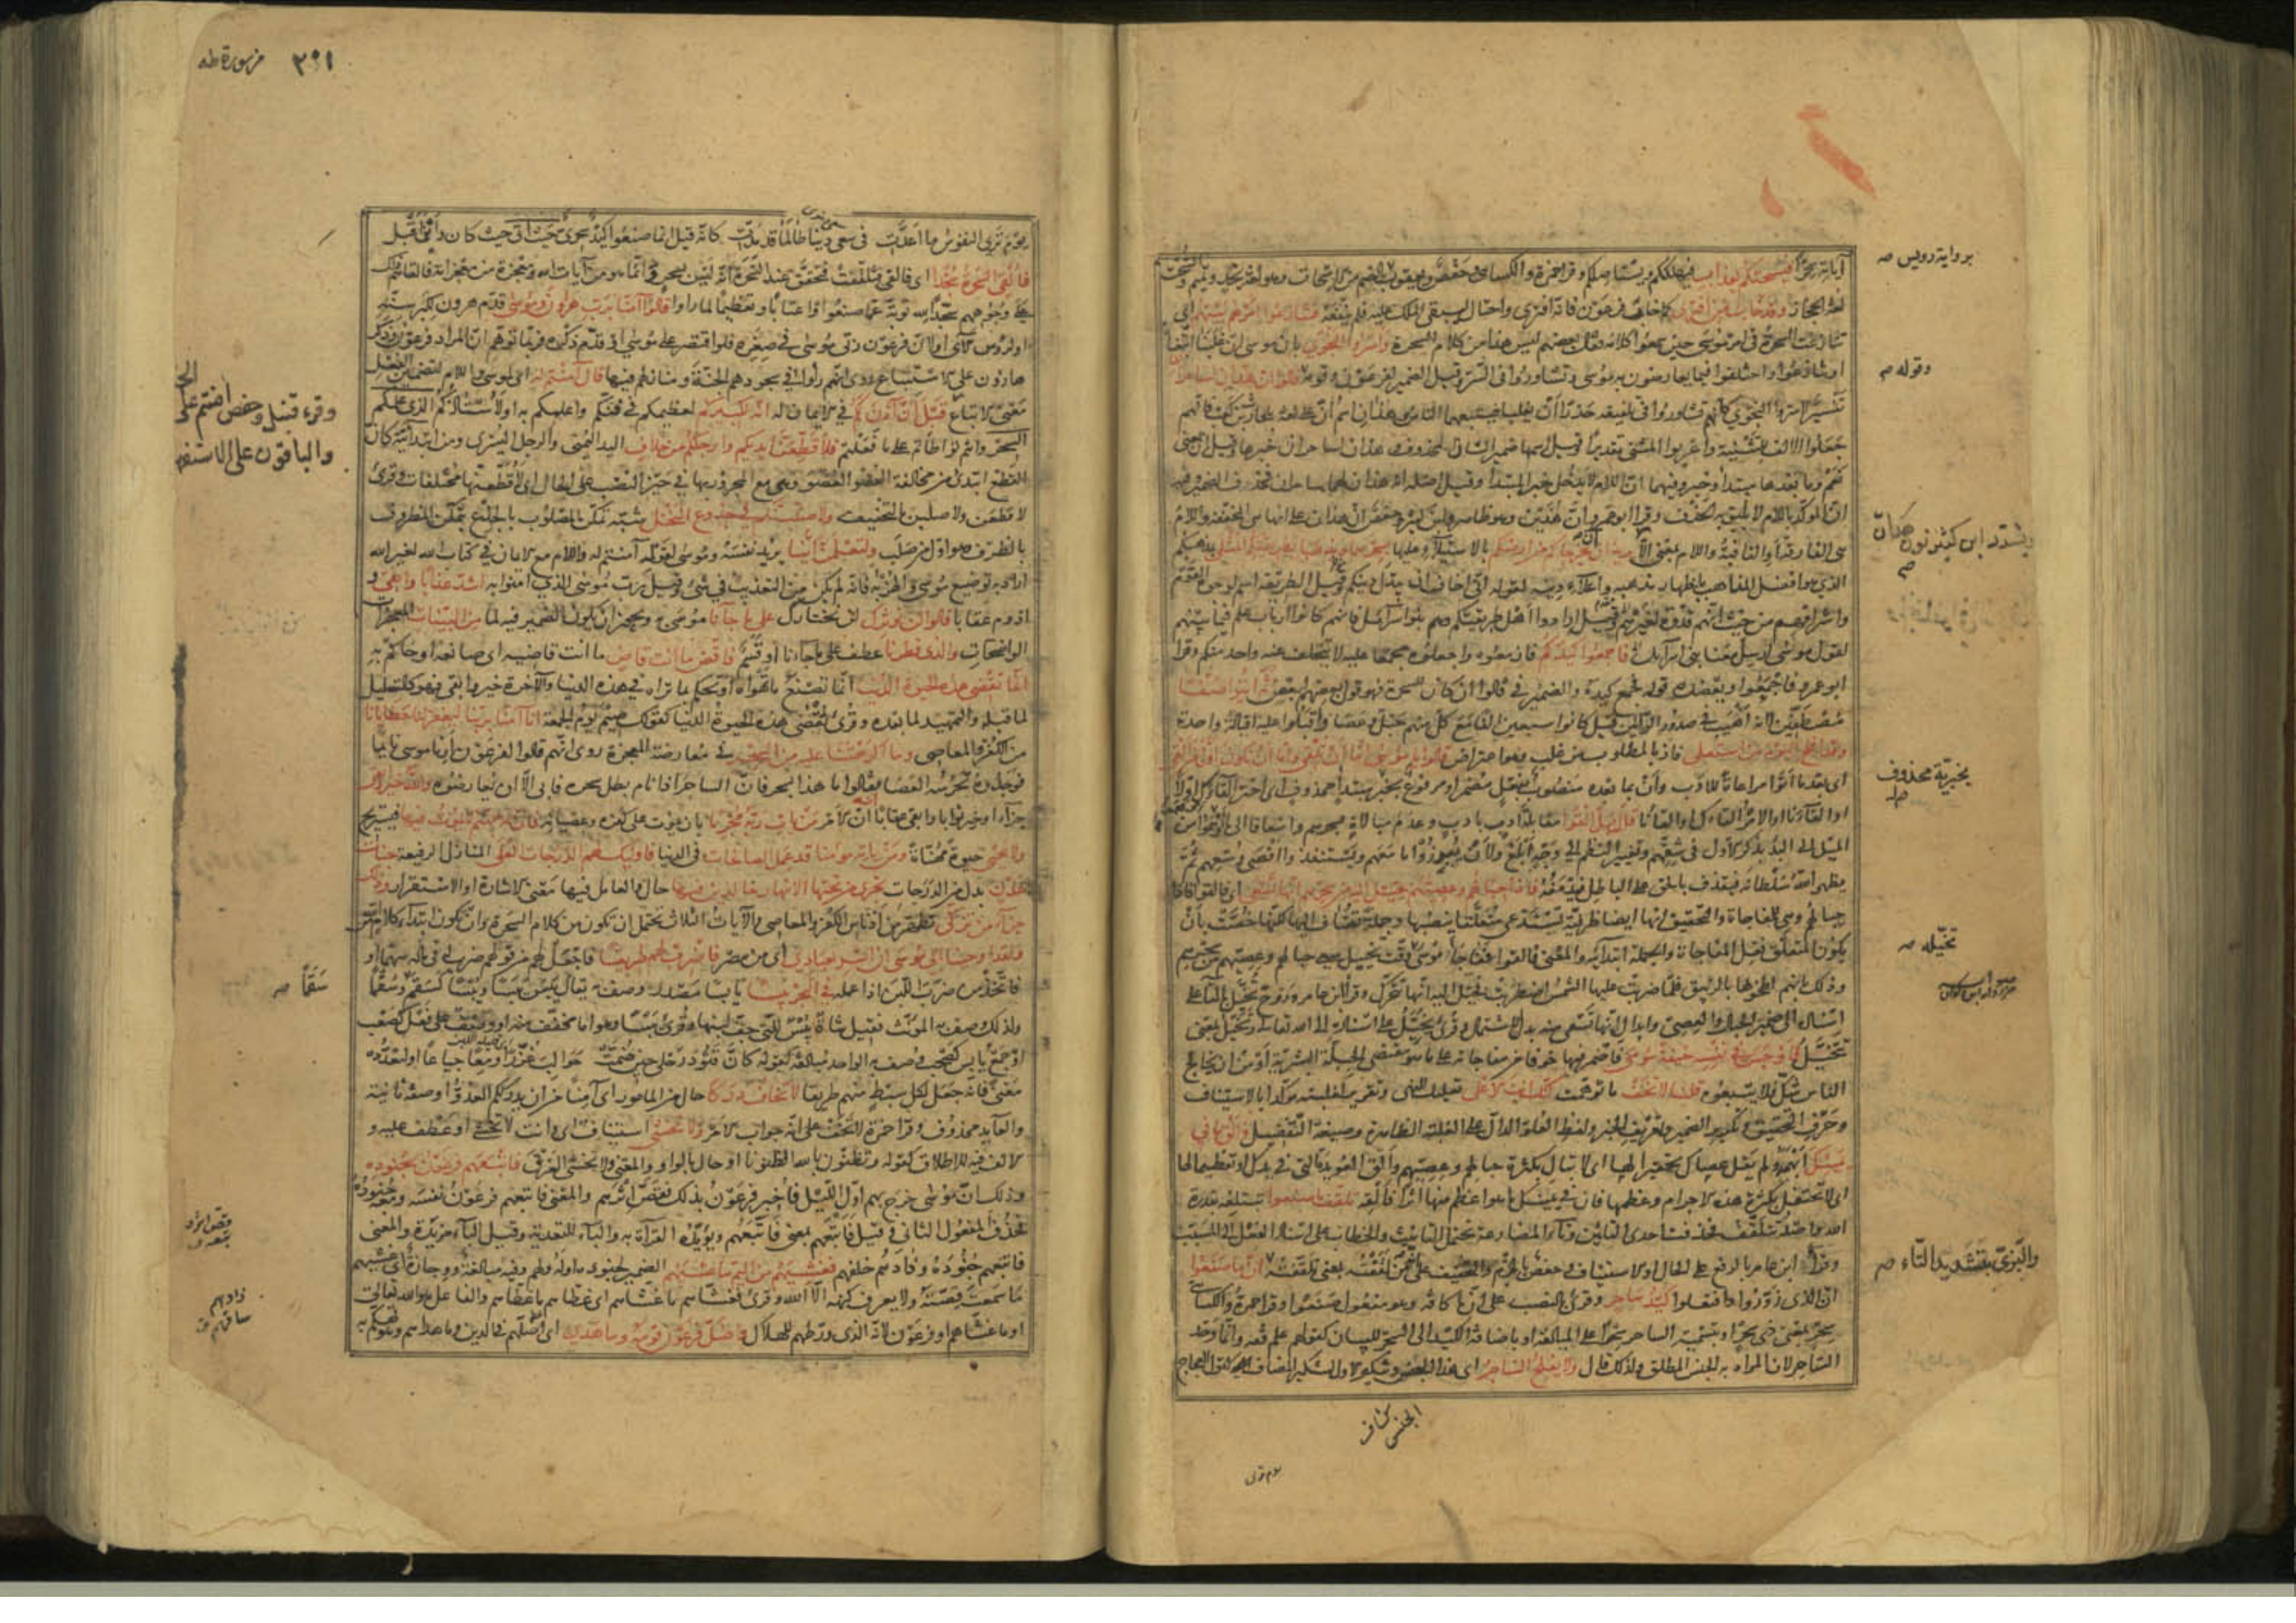 آياته سحرا فيسحتكم بعذاب فيهلككم ويستاصلكم وقرا حمزة والكسائي وحفص ويعقوب بالضم من الاسحات وهو لغة نجد وتميم والسحت
لغة الحجاز وقد خاب من افترى كما خاب فرعون فانه افترى واحتال ليبقى الملك عليه فلم ينفعه فتنازعوا امرهم بينهم اي
تنازعت السحرة في امر موسى حين سمعوا كلامه فقال بعضهم ليس هذا من كلام السحرة واسروا النجوى بان موسى ان غلبنا اتبعناه
او تنازعوا واختلفوا فيما يعارضون به موسى وتشاوروا في السر وقيل الضمير لفرعون وقومه قالوا ان هذان لساحران
تفسير لاسروا النجوى كانهم تشاوروا في تلفيقه حذرا ان يغلبا فيتبعهما الناس وهذان اسم ان على لغة بلحارث بن كعب فانهم
جعلوا الالف للتثنية واعربوا المثنى تقديرا وقيل اسمها ضمير الشان المحذوف وهذان لساحران خبرها وقيل ان بمعنى
نعم وما بعدها مبتدأ وخبر وفيهما ان اللام لا يدخل خبر المبتدا وقيل اصله انه هذان لهما ساحران فحذف الضمير وفيه
ان الموكد باللام لا يليق به الحذف وقرا ابو عمرو ان هذين وهو ظاهر وابن كثير وحفص ان هذان على انها هي المخففة واللام
هي الفارقة او النافية واللام بمعنى الا يريدان ان يخرجاكم من ارضكم بالاستيلاء عليها بسحرهما ويذهبا بطريقتكم المثلى بمذهبكم
الذي هو افضل المذاهب باظهار مذهبه واعلاء دينه لقوله اني اخاف ان يبدل دينكم وقيل الطريقة اسم لوجوه القوم
واشرافهم من حيث انهم قدوة لغيرهم وقيل ارادوا اهل طريقتكم وهم بنو اسرائيل فانهم كانوا ارباب علم فيما بينهم
لقول موسى ارسل معنا بني اسرائيل فاجمعوا كيدكم فازمعوه واجعلوه مجمعا عليه لا يتخلف عنه واحد منكم وقرا
ابو عمرو فاجمعوا ويعضده قوله فجمع كيده والضمير في قالوا ان كان للسحرة فهو قول بعضهم لبعض ثم ائتوا صفا
مصطفين لانه اهيب في صدور الرائين قيل كانوا سبعين الفا مع كل منهم حبل وعصا واقبلوا عليه اقبالة واحدة
وقد افلح اليوم من استعلى فاز بالمطلوب من غلب وهو اعتراض قالوا يا موسى اما ان تلقي واما ان نكون اول من القى
اي بعد ما اتوا مراعاة للادب وان بما بعده منصوب بفعل مضمر او مرفوع بخبر مبتدا محذوف اي اختر القاءك اولا
او القاءنا او الامر القاءك او القاءنا قال بل القوا مقابلة ادب بادب وعدم مبالاة بسحرهم واسعافا الى ما اوهموا من
الميل الى البدء بذكر الاول في شقهم وتغيير النظم الى وجه ابلغ ولان يبرزوا ما معهم ويستنفذوا اقصى وسعهم ثم
يظهر الله سلطانه فيقذف بالحق على الباطل فيدمغه فاذا حبالهم وعصيهم يخيل اليه من سحرهم انها تسعى اي فالقوا فاذا
حبالهم وهي للمفاجاة والتحقيق انها ايضا ظرفية تستدعي متعلقا ينصبها وجملة تضاف اليها لكنها خصت بان
يكون المتعلق فعل المفاجاة والجملة ابتدائية والمعنى فالقوا ففاجأ موسى وقت تخييل سعي حبالهم وعصيهم من سحرهم
وذلك بانهم لطخوها بالزئبق فلما ضربت عليها الشمس اضطربت فخيل اليه انها تتحرك وقرا ابن عامر وروح تخيل بالتاء على
اسناده الى ضمير الحبال والعصي وابدال انها تسعى منه بدل الاشتمال وقرئ يخيل على اسناده الى الله تعالى وتخيل بمعنى
تتخيل فاوجس في نفسه خيفة موسى فاضمر فيها خوفا من مفاجاته على ما هو مقتضى الجبلة البشرية او من ان يخالج
الناس شك فلا يتبعوه قلنا لا تخف ما توهمت انك انت الاعلى تعليل للنهي وتقرير لغلبته مؤكدا بالاستيناف
وحرف التحقيق وتكرير الضمير وتعريف الخبر ولفظ العلو الدال على الغلبة الظاهرة وصيغة التفضيل والق ما في
يمينك ابهمه ولم يقل عصاك تحقيرا لها اي لا تبال بكثرة حبالهم وعصيهم والق العويدة التي في يدك او تعظيما لها
اي لا تحتفل بكثرة هذه الاجرام وعظمها فان في يمينك ما هو اعظم منها اثرا فالقه تلقف ما صنعوا تبتلعه بقدرة
الله واصله تتلقف فحذفت احدى التائين وتاء المضارعة تحتمل التانيث والخطاب على اسناد الفعل الى المسبب
وقرأ ابن عامر بالرفع على الحال او الاستيناف وحفص بالجزم والتخفيف على انه من لقفته بمعنى تلقفته ان ما صنعوا
ان الذي زوروا وافتعلوا كيد ساحر وقرئ بالنصب على ان ما كافة وهو مفعول صنعوا وقرا حمزة والكسائي
سحر بمعنى ذي سحر او بتسمية الساحر سحرا على المبالغة او باضافة الكيد الى السحر للبيان كقولهم علم فقه وانما وحد
الساحر لان المراد به الجنس المطلق ولذلك قال ولا يفلح الساحر اي هذا الجنس وتنكير الاول لتنكير المضاف كقول العجاج
برواية رويس صه
وقوله صه
بتشديد ابن كثير نون هذان
صه
بخبرية محذوف
تخيله صه
والبزي بتشديد التاء صه
الجنس
يوم ترى
٣٠١ من سورة طه
يوم ترى النفوس ما اعدت في سعي دنيا طالما قد مدت كانه قيل انما صنعوا كيد سحري حيث اتى حيث كان واين اقبل
فالقي السحرة سجدا اي فالقى فتلقفت فتحقق عند السحرة انه ليس بسحر وانما هو من آيات الله ومعجزة من معجزاته فالقاهم ذلك
على وجوههم سجدا لله توبة عما صنعوا واعتابا وتعظيما لما راوا قالوا آمنا برب هرون وموسى قدم هرون لكبر سنه
او لروس الآي او لان فرعون ربى موسى في صغره فلو اقتصر على موسى او قدم ذكره فربما توهم ان المراد فرعون وذكر
هارون على الاستتباع روي انهم راوا في سجودهم الجنة ومنازلهم فيها قال آمنتم له اي لموسى واللام لتضمن الفعل
معنى الاتباع قبل ان آذن لكم في الايمان له انه لكبيركم لعظيمكم في فنكم واعلمكم به او لاستاذكم الذي علمكم
السحر وانتم تواطاتم على ما فعلتم فلاقطعن ايديكم وارجلكم من خلاف اليد اليمنى والرجل اليسرى ومن ابتدائية كان
القطع ابتدئ من مخالفة العضو العضو وهي مع المجرور بها في حيز النصب على الحال اي لاقطعنها مختلفات وقرئ
لاقطعن ولاصلبن بالتخفيف ولاصلبنكم في جذوع النخل شبه تمكن المصلوب بالجذع بتمكن المظروف
بالظرف وهو اول من صلب ولتعلمن اينا يريد نفسه وموسى لقوله آمنتم له واللام مع الايمان في كتاب الله لغير الله
اراد به توضيع موسى والهزء به فانه لم يكن من التعذيب في شيء وقيل رب موسى الذي آمنوا به اشد عذابا وابقى و
ادوم عقابا قالوا لن نؤثرك لن نختارك على ما جاءنا موسى به ويجوز ان يكون الضمير فيه لما من البينات المعجزات
الواضحات والذي فطرنا عطف على ما جاءنا او قسم فاقض ما انت قاض ما انت قاضيه اي صانعه او حاكم به
انما تقضي هذه الحيوة الدنيا انما تصنع ما تهواه او تحكم بما تراه في هذه الدنيا والآخرة خير وابقى فهو كالتعليل
لما قبله والتمهيد لما بعده وقرئ تقضى هذه الحيوة الدنيا كقولك صيم يوم الجمعة انا آمنا بربنا ليغفر لنا خطايانا
من الكفر والمعاصي وما اكرهتنا عليه من السحر في معارضة المعجزة روي انهم قالوا لفرعون ارنا موسى نائما
فوجدوه تحرسه العصا فقالوا ما هذا بسحر فان الساحر اذا نام بطل سحره فابى الا ان يعارضوه والله خير وابقى
جزاء او خير ثوابا وابقى عقابا ان الامر من يات ربه مجرما بان يموت على كفره وعصيانه فان له جهنم لا يموت فيها فيستريح
ولا يحيى حيوة مهناة ومن ياته مؤمنا قد عمل الصالحات في الدنيا فاولئك لهم الدرجات العلى المنازل الرفيعة جنات
عدن بدل من الدرجات تجري من تحتها الانهار خالدين فيها حال والعامل فيها معنى الاشارة او الاستقرار وذلك
جزاء من تزكى تطهر من ادناس الكفر والمعاصي والآيات الثلاث يحتمل ان تكون من كلام السحرة وان تكون ابتداء كلام الله
ولقد اوحينا الى موسى ان اسر بعبادي اي من مصر فاضرب لهم طريقا فاجعل لهم من قولهم ضرب له في ماله سهما او
فاتخذ من ضرب اللبن اذا عمله في البحر يبسا يابسا مصدر وصف به يقال يبس يبسا ويبسا كسقم سقما
ولذلك وصف به المؤنث فقيل شاة يبس للتي جف لبنها وقرئ يبسا وهو اما مخفف منه او وصف على فعل كصعب
او جمع يابس كصحب وصف به الواحد مبالغة كقوله كان قتود رحلي حين ضمت حوالب غرزا ومعا جياعا او لتعدده
معنى فانه جعل لكل سبط منهم طريقا لا تخاف دركا حال من المامور اي آمنا من ان يدرككم العدو او صفة ثانية
والعائد محذوف وقرا حمزة لا تخف على انه جواب الامر ولا تخشى استيناف اي وانت لا تخشى او عطف عليه و
الالف فيه للاطلاق كقوله وتظنون بالله الظنونا او حال بالواو والمعنى ولا تخشى الغرق فاتبعهم فرعون بجنوده
وذلك ان موسى خرج بهم اول الليل فاخبر فرعون بذلك فقص اثرهم والمعنى فاتبعهم فرعون نفسه ومعه جنوده
فحذف المفعول الثاني وقيل فاتبعهم بمعنى فاتبعهم ويؤيده القراءة به والباء للتعدية وقيل الباء مزيدة والمعنى
فاتبعهم جنوده وذادهم خلفهم فغشيهم من اليم ما غشيهم الضمير لجنوده او له ولهم وفيه مبالغة ووجازة اي غشيهم
ما سمعت قصته ولا يعرف كنهه الا الله وقرئ فغشاهم ما غشاهم اي غطاهم ما غطاهم والفاعل هو الله تعالى
او ما غشاهم او فرعون لانه الذي ورطهم للهلاك واضل فرعون قومه وما هدى اي اضلهم في الدين وما هداهم وهو تهكم به
وقرء قنبل وحفص آمنتم على
والباقون على الاستفهام
سقما صه
فقص اثرهم
ذادهم
ساقهم